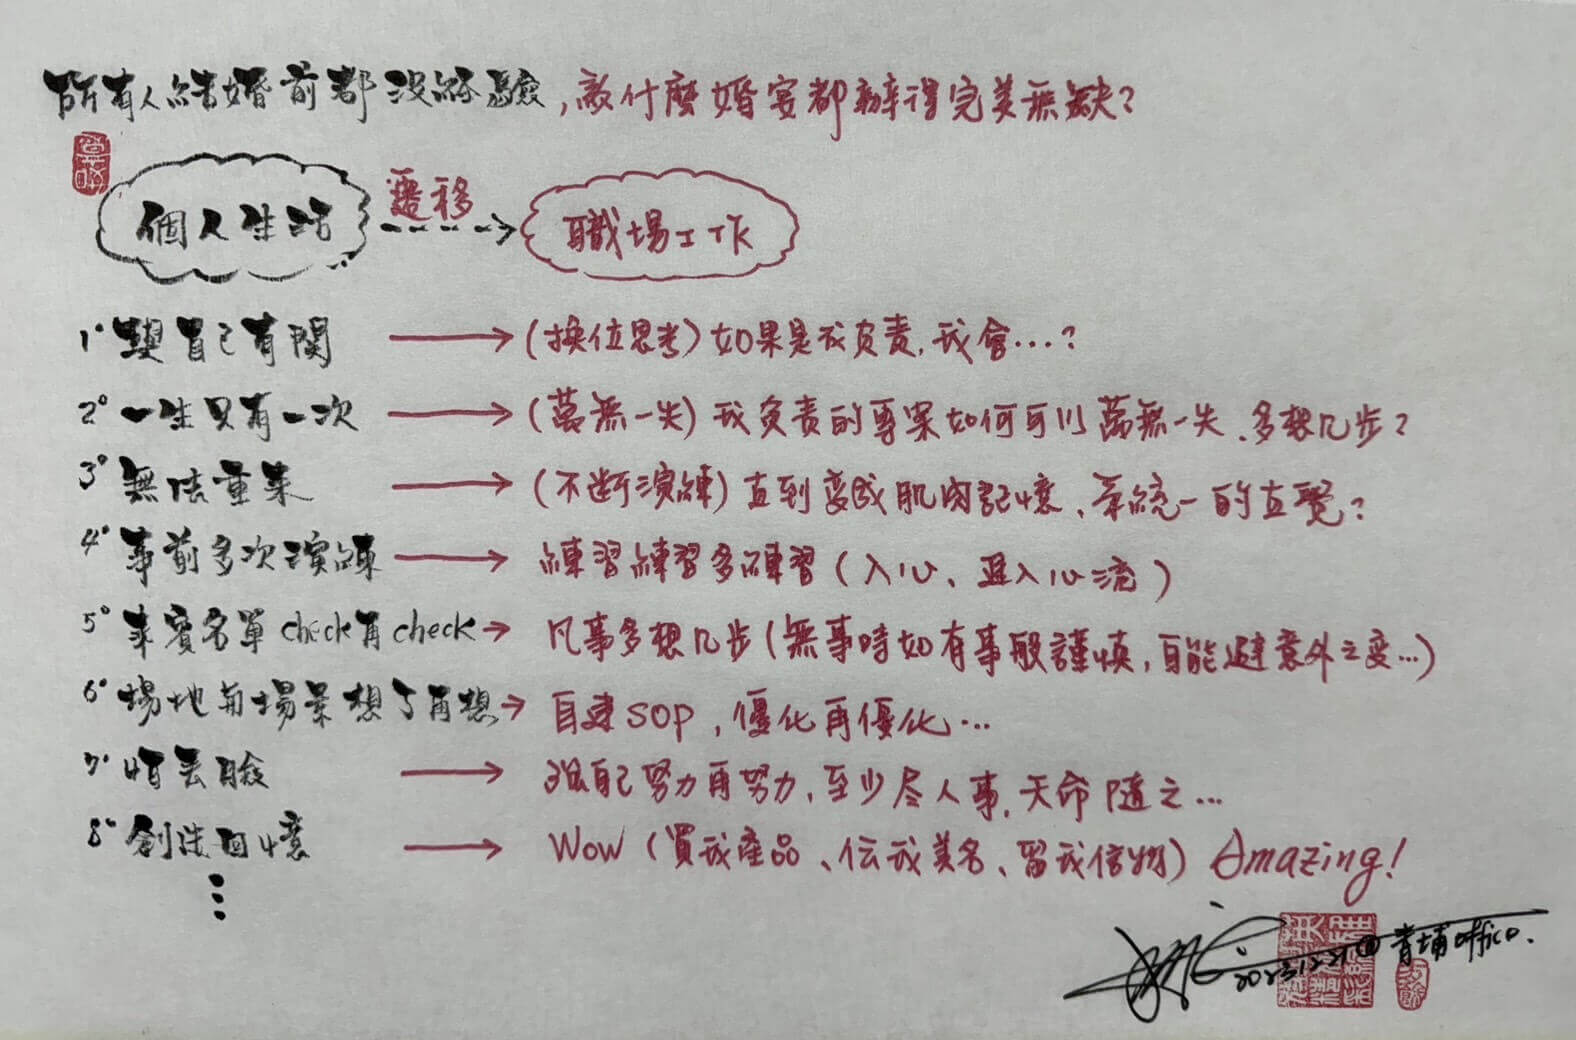 所有人結婚前都沒經驗,為什麼婚宴都辦得完美無缺?
個人生活 遷移 職場工作
1° 跟自己有關 → (換位思考) 如果是我负責,我會…?
2° 一生只有一次 → (萬無一失) 我负責的專案如何可以萬無一失、多想几步?
3° 無法重來 → (不斷演練) 直到變成肌肉記憶、系統一的直覺?
4° 事前多次演練 → 練習練習多練習 (入心、進入心流)
5° 來賓名單check再check → 凡事多想几步 (無事時如有事般謹慎,自能避意外之變…)
6° 場地与場景想了再想 → 自建SOP,優化再優化…
7° 怕丟臉 → 強自己努力再努力,至少尽人事,天命隨之…
8° 創造回憶 → Wow (買我產品、伝我美名、留我信物) Amazing!
⋮
20231221@青埔office.